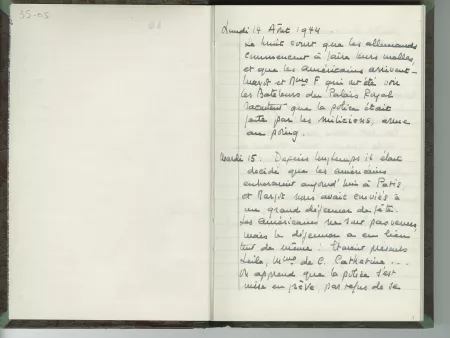 35-05
Lundi 14 Août 1944
Le bruit court que les allemands
commencent à faire leurs malles,
et que les américains arrivent -
Margot et Bmo F qui ont été voir
les Bateleurs du Palais Royal
racontent que la police était
faite par les miliciens, arme
au poing.
Mardi 15. Depuis longtemps il était
décidé que les américains
entreraient aujourd'hui à Paris,
et Margot nous avait conviés à
un grand déjeuner de fête.
Les Américains ne sont pas venus,
mais le déjeuner a eu lieu
tout de même : étaient présents
Leila, de C. Catherine ...
On apprend que la police s'est
mise en grève, par refus de se